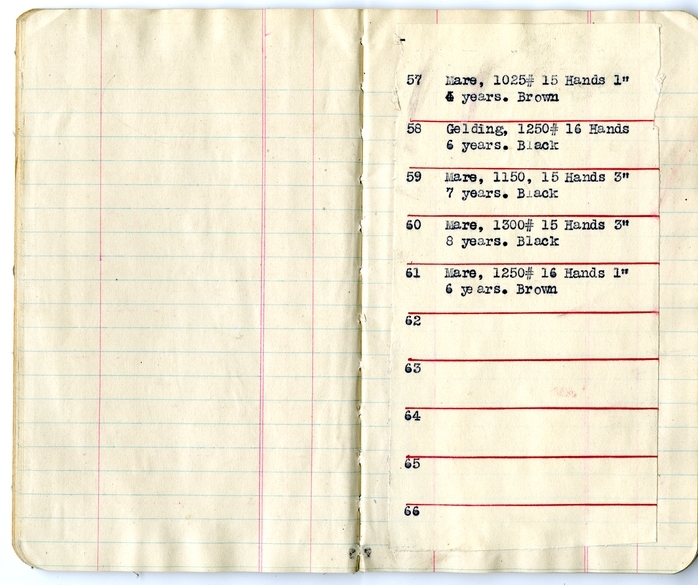 57 Mare, 1025# 15 Hands 1"
4 years. Brown
58 Gelding, 1250# 16 Hands
6 years. Black
59 Mare, 1150, 15 Hands 3"
7 years. Black
60 Mare, 1300# 15 Hands 3"
8 years. Black
61 Mare, 1250# 16 Hands 1"
6 years. Brown
62
63
64
65
66